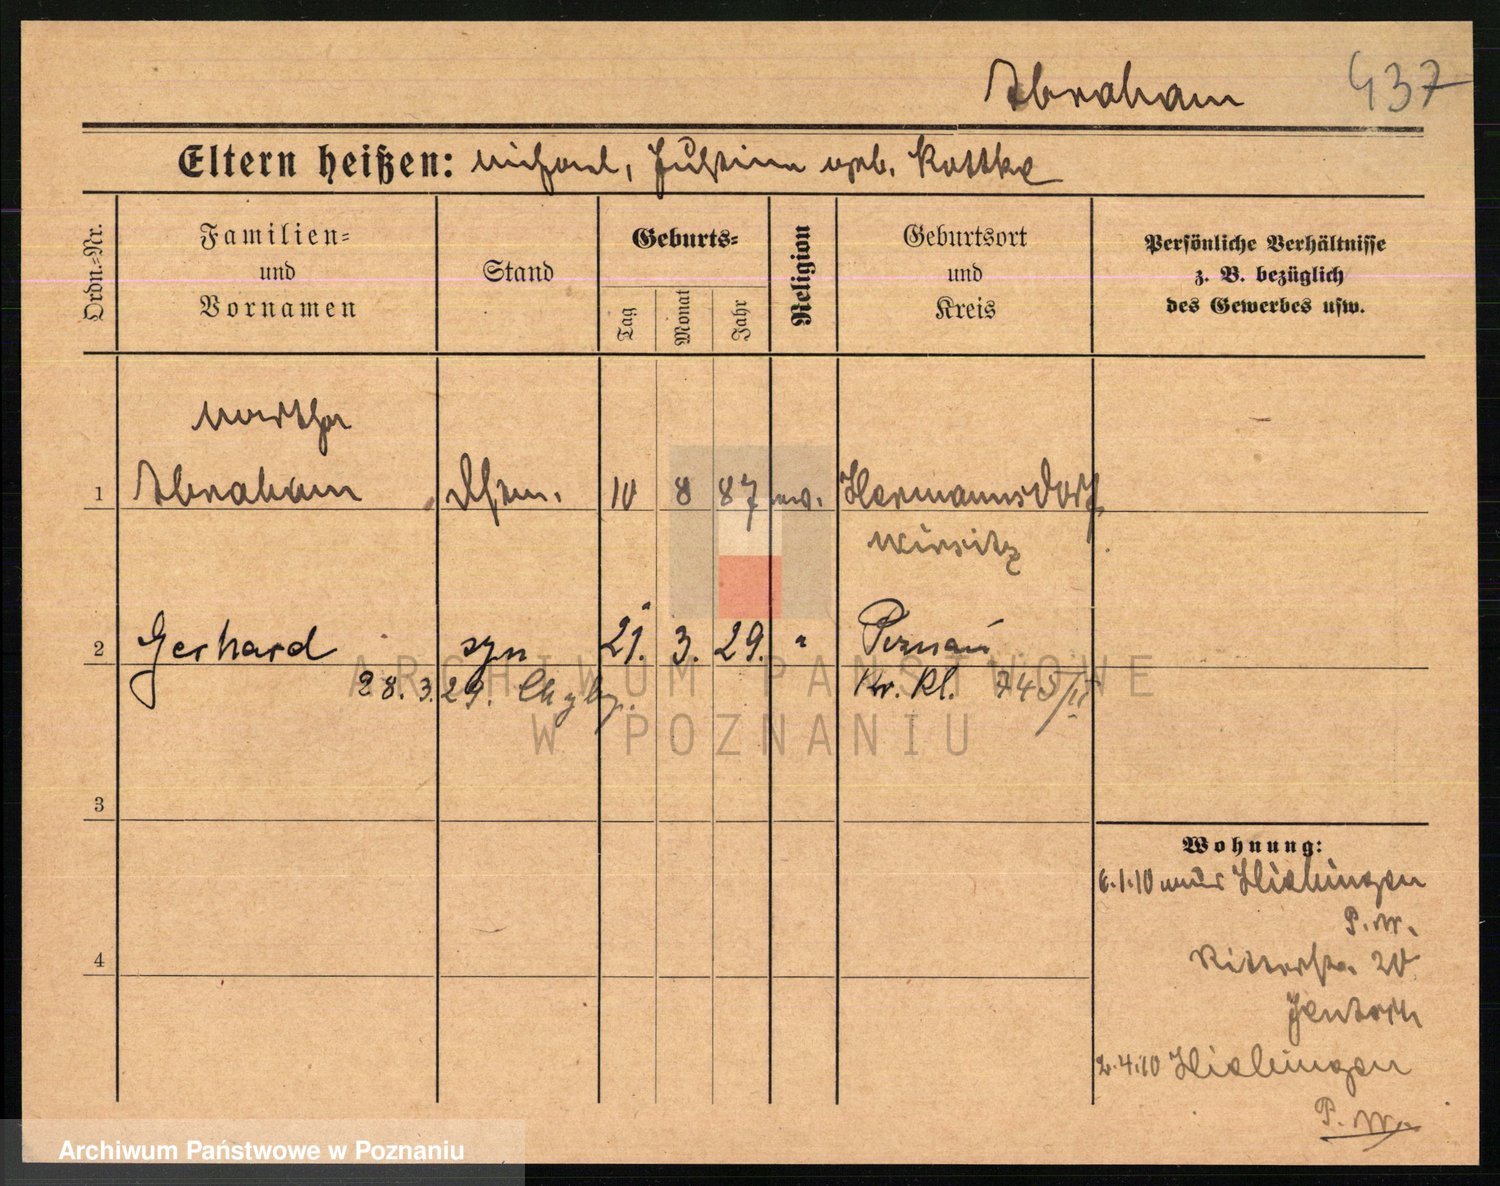 Abraham 437
Eltern heißen: Michael, Justine geb. Kottke
Ordn.-Nr.
Familien-
und
Vornamen
Stand
Geburts-
Tag
Monat
Jahr
Religion
Geburtsort
und
Kreis
Persönliche Verhältnisse
z. B. bezüglich
des Gewerbes usw.
Martha
1 Abraham 10 8 87 ev. Hermannsdorf
Wirsitz
2 Gerhard syn 21. 3. 29. " Poznań
28. 3. 29. Kr. Kl. 745/II
3
4
Wohnung:
6.1.10 aus
P. W.
Ritterstr. 20
2.4.10
P. W.
ARCHIWUM PAŃSTWOWE
W POZNANIU
Archiwum Państwowe w Poznaniu